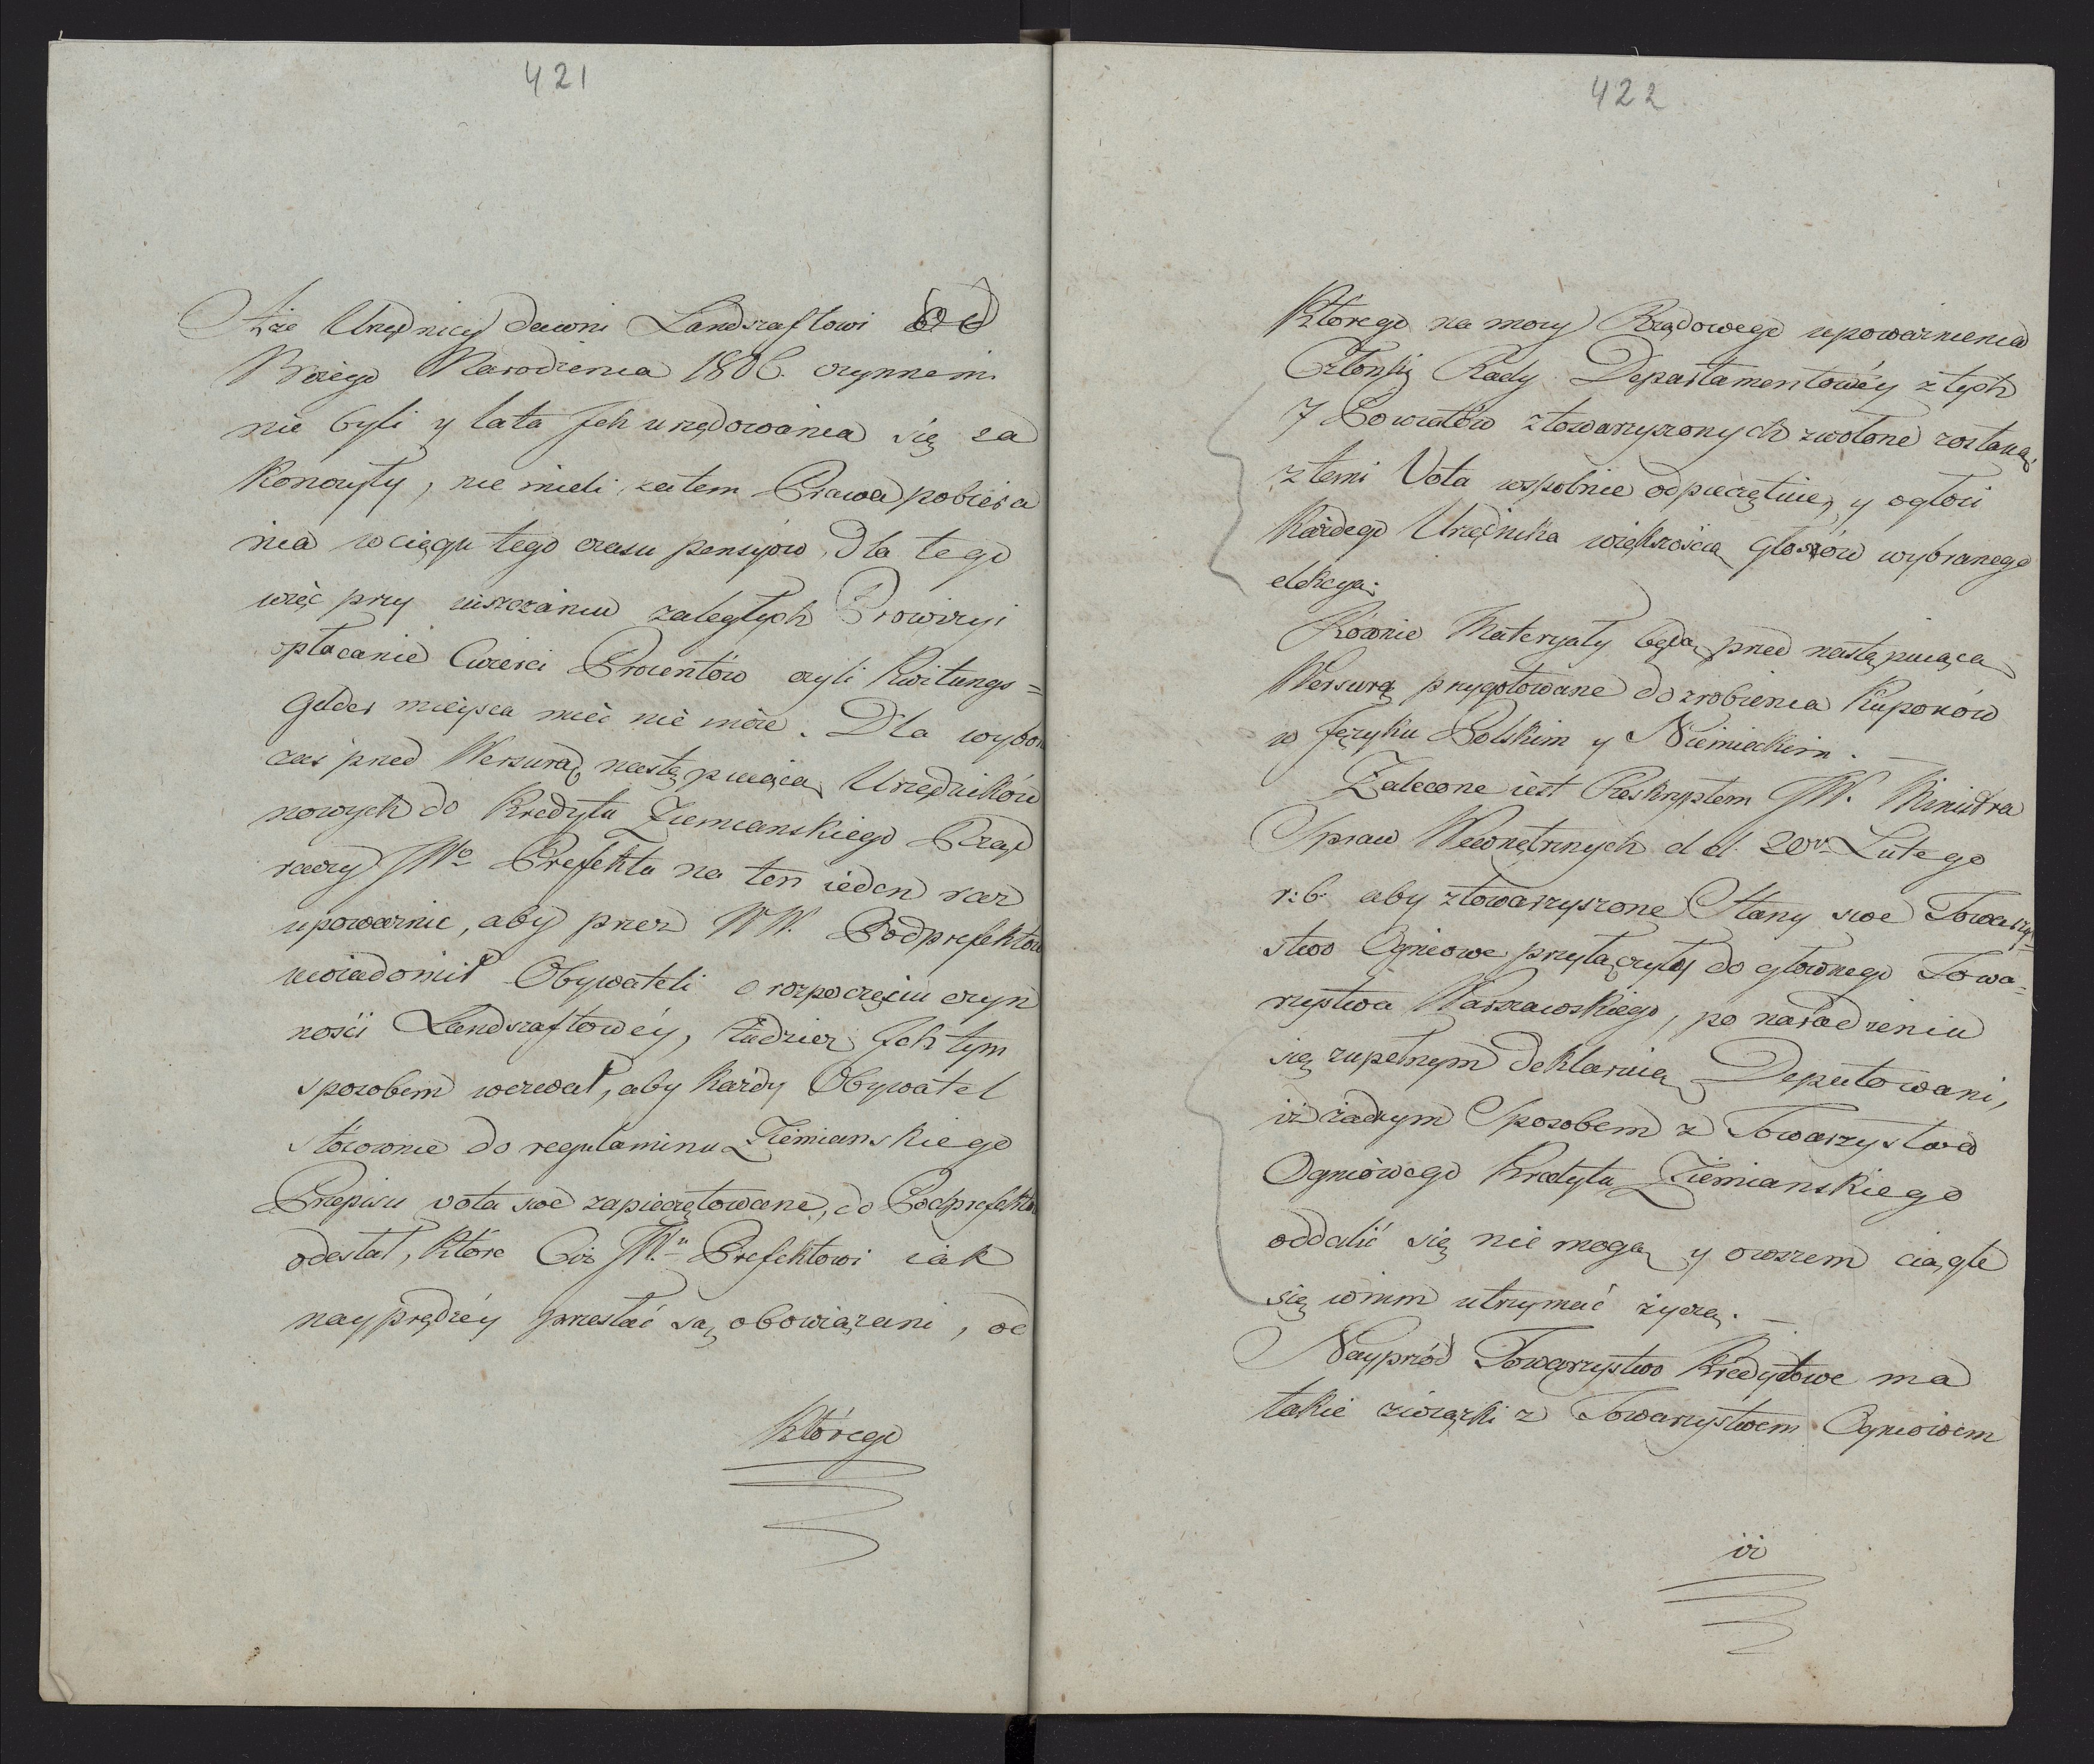 421
Aże Urzędnicy dawni Landszaftowi od
Bożego Narodzenia 1806. czynnemi
nie byli y lata Jch urzędowania się za
kończyły, nie mieli zatem Prawa pobiera
nia wciągu tego czasu pensyów, Dla tego
więc przy uiszczaniu zaległych Prowizyi
opłacanie Cwierci Procentów czyli Kwitungs=
gelder mieysca mieć nie może. Dla wybor
czas przed Wersurą następuiącą Urzędników
nowych do Kredytu Ziemianskiego Rząd
raczy JWo Prefekta na ten ieden raz
upoważnic, aby przez WW. Podprefektów
uwiadomił Obywateli o rozpoczęciu czyn
ności Landszaftowéy, tudzież Jch tym
sposobem wezwał, aby każdy Obywatel
stósownie do regulaminu Ziemianskiego
Przepisu vota swe zapieczętowane, do Podprefekta
odesłał, które Ciż JW.u Prefektowi iak
nayprędzéy przesłać są obowiązani, od
którego
422
Którego na mocy Rządowego upoważnienia
Członki Rady Departamentowéy z tych
7 Powiatów ztowarzyszonych zwołone zostaną,
z temi Vota wspolnie odpieczętuie, y ogłosi
Każdego Urzędnika większością głosów wybranego
elekcyą.
Równie Materyały będą przed następuiącą
Wersurą przygotowane do zrobienia Kuponów
w Języku Polskim y Niemieckim. —
Zalecone iest Reskryptem JW. Ministra
Spraw Wewnętrznych d d. 20go Lutego
r: b. aby ztowarzyszone Stany swe Towarzy=
stwo Ogniowe przyłączyły do głównego Towa=
rzystwa Warszawskiego, po naradzeniu
się zupełnym deklaruią Deputowani,
iż żadnym Sposobem z Towarzystwa
Ogniówego Kredytu Ziemianskiego
oddalić się nie mogą y owszem ciągle
się wnim utrzymać życzą. —
Nayprzód Towarzystwo Kredytowe ma
takie związki z Towarzystwem Ogniowem
iż